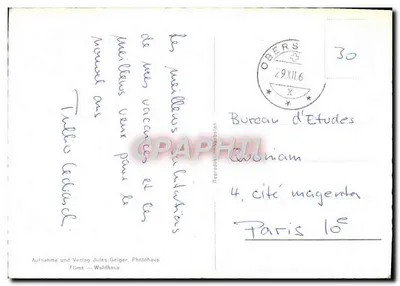 Les meilleures salutations
de mes vacances et les
meilleurs vœux pour le
nouvel an
Tullio
Aufnahme und Verlag Jules Geiger, Photohaus
Flims - Waldhaus
OBERS
29 XII.6
X
30
Bureau d'Etudes
4, cité magenta
Paris 10e
CPAPHIL